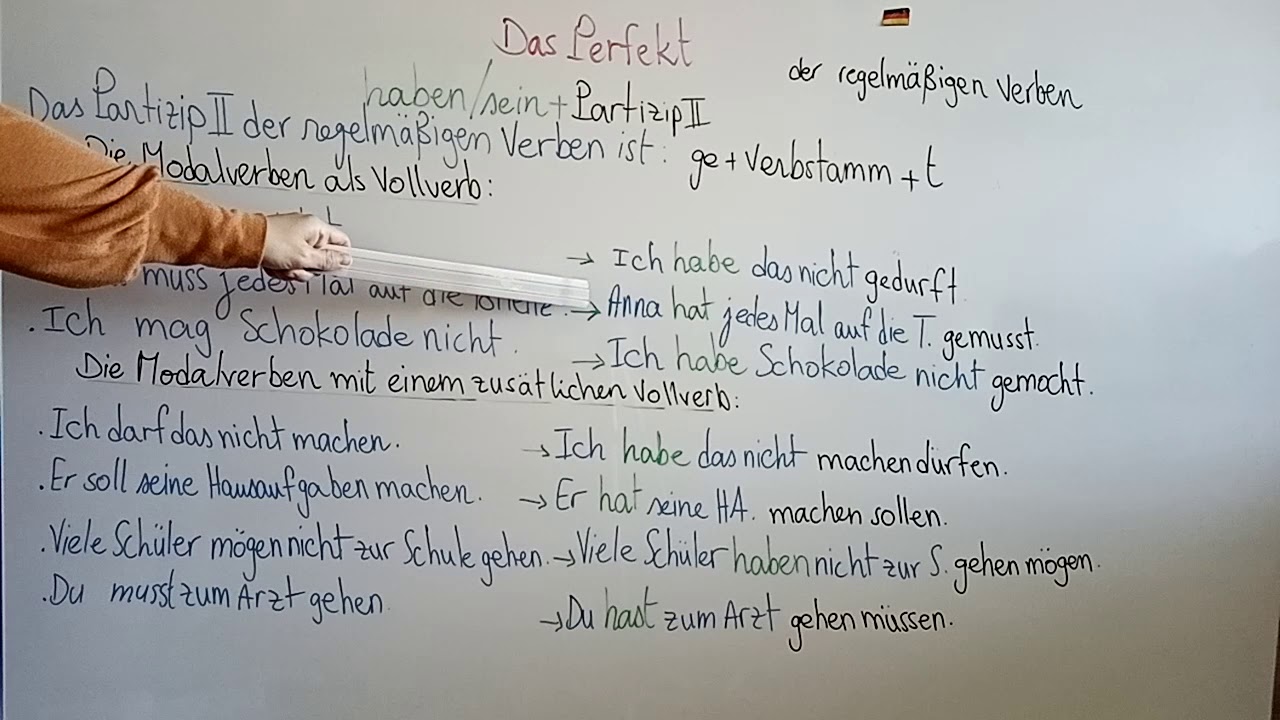 Das Perfekt
der regelmäßigen Verben
haben/sein + Partizip II
Das Partizip II der regelmäßigen Verben ist: ge + Verbstamm + t
Die Modalverben als Vollverb:
→ Ich habe das nicht gedurft
muss jedes Mal auf die Toilette. → Anna hat jedes Mal auf die T. gemusst.
. Ich mag Schokolade nicht. → Ich habe Schokolade nicht gemocht.
Die Modalverben mit einem zusätlichen Vollverb:
. Ich darf das nicht machen. → Ich habe das nicht machen dürfen.
. Er soll seine Hausaufgaben machen. → Er hat seine HA. machen sollen.
. Viele Schüler mögen nicht zur Schule gehen. → Viele Schüler haben nicht zur S. gehen mögen.
. Du musst zum Arzt gehen → Du hast zum Arzt gehen müssen.